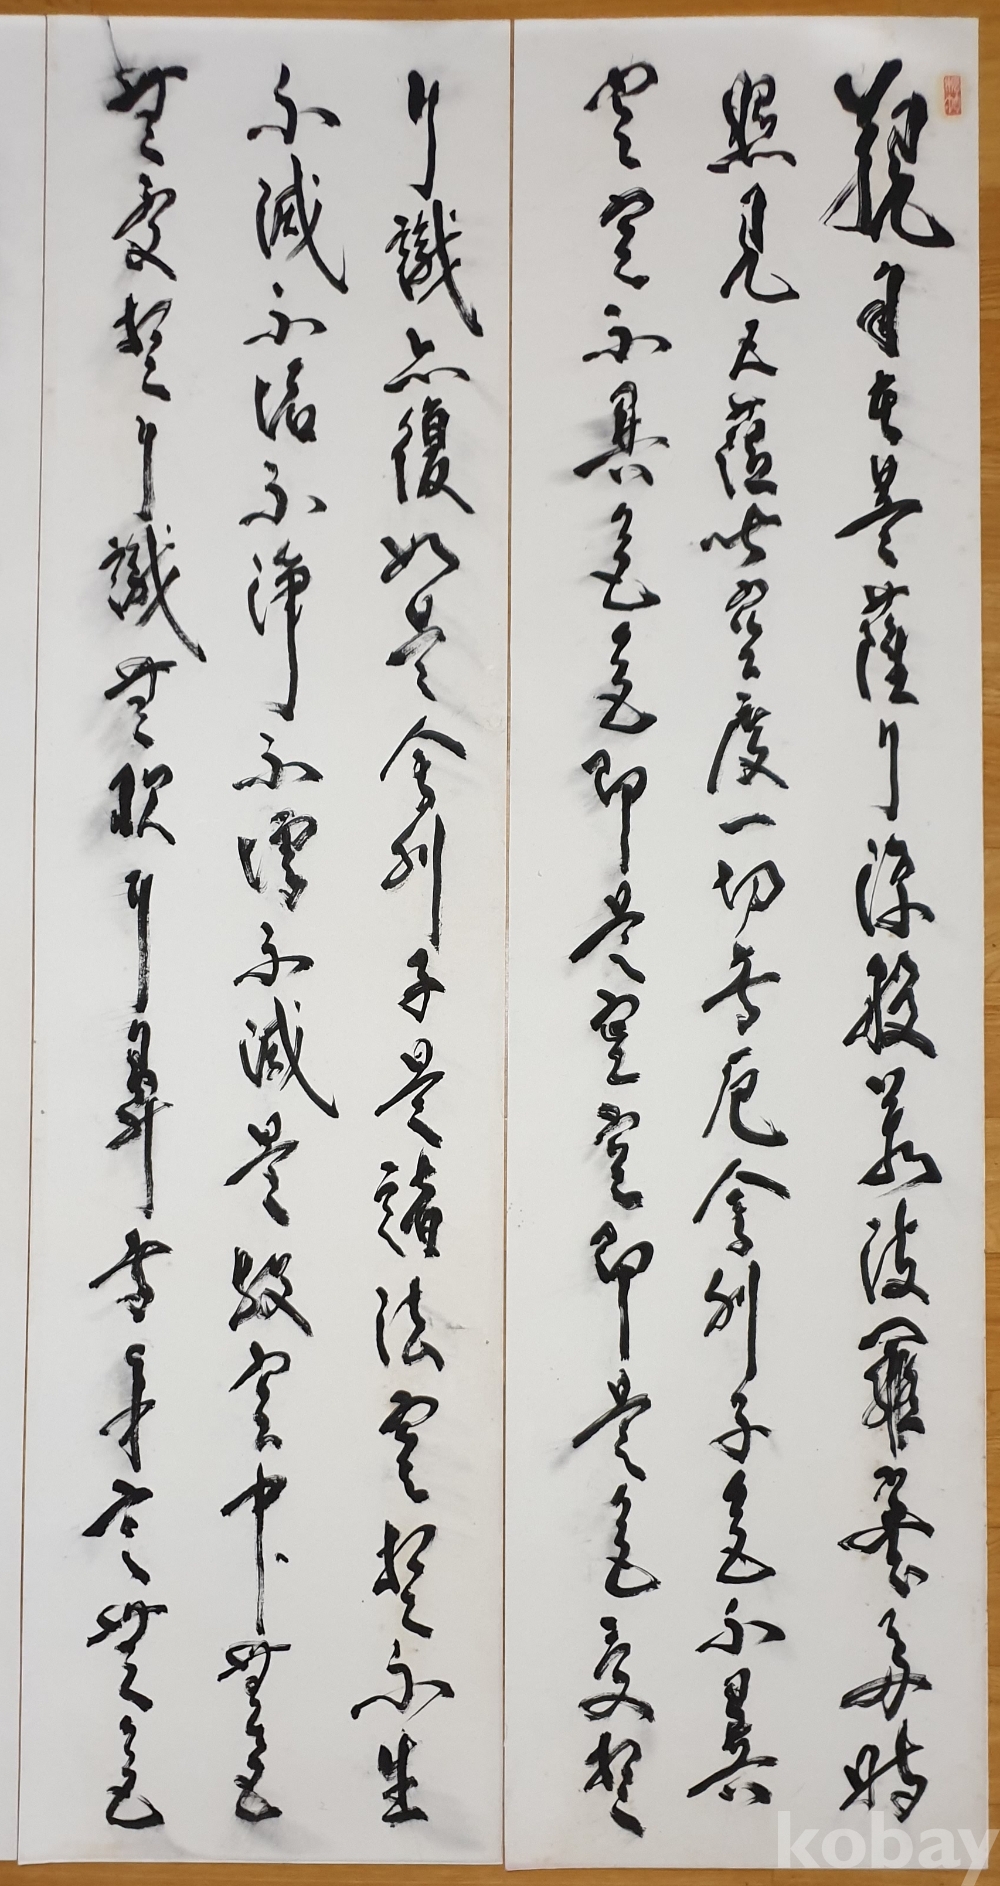 觀自在菩薩行深般若波羅蜜多時
照見五蘊皆空度一切苦厄舍利子色不異
空空不異色色即是空空即是色受想
行識亦復如是舍利子是諸法空想不生
不滅不垢不淨不增不減是故空中無色
無受想行識無眼耳鼻舌身意無色
kobay